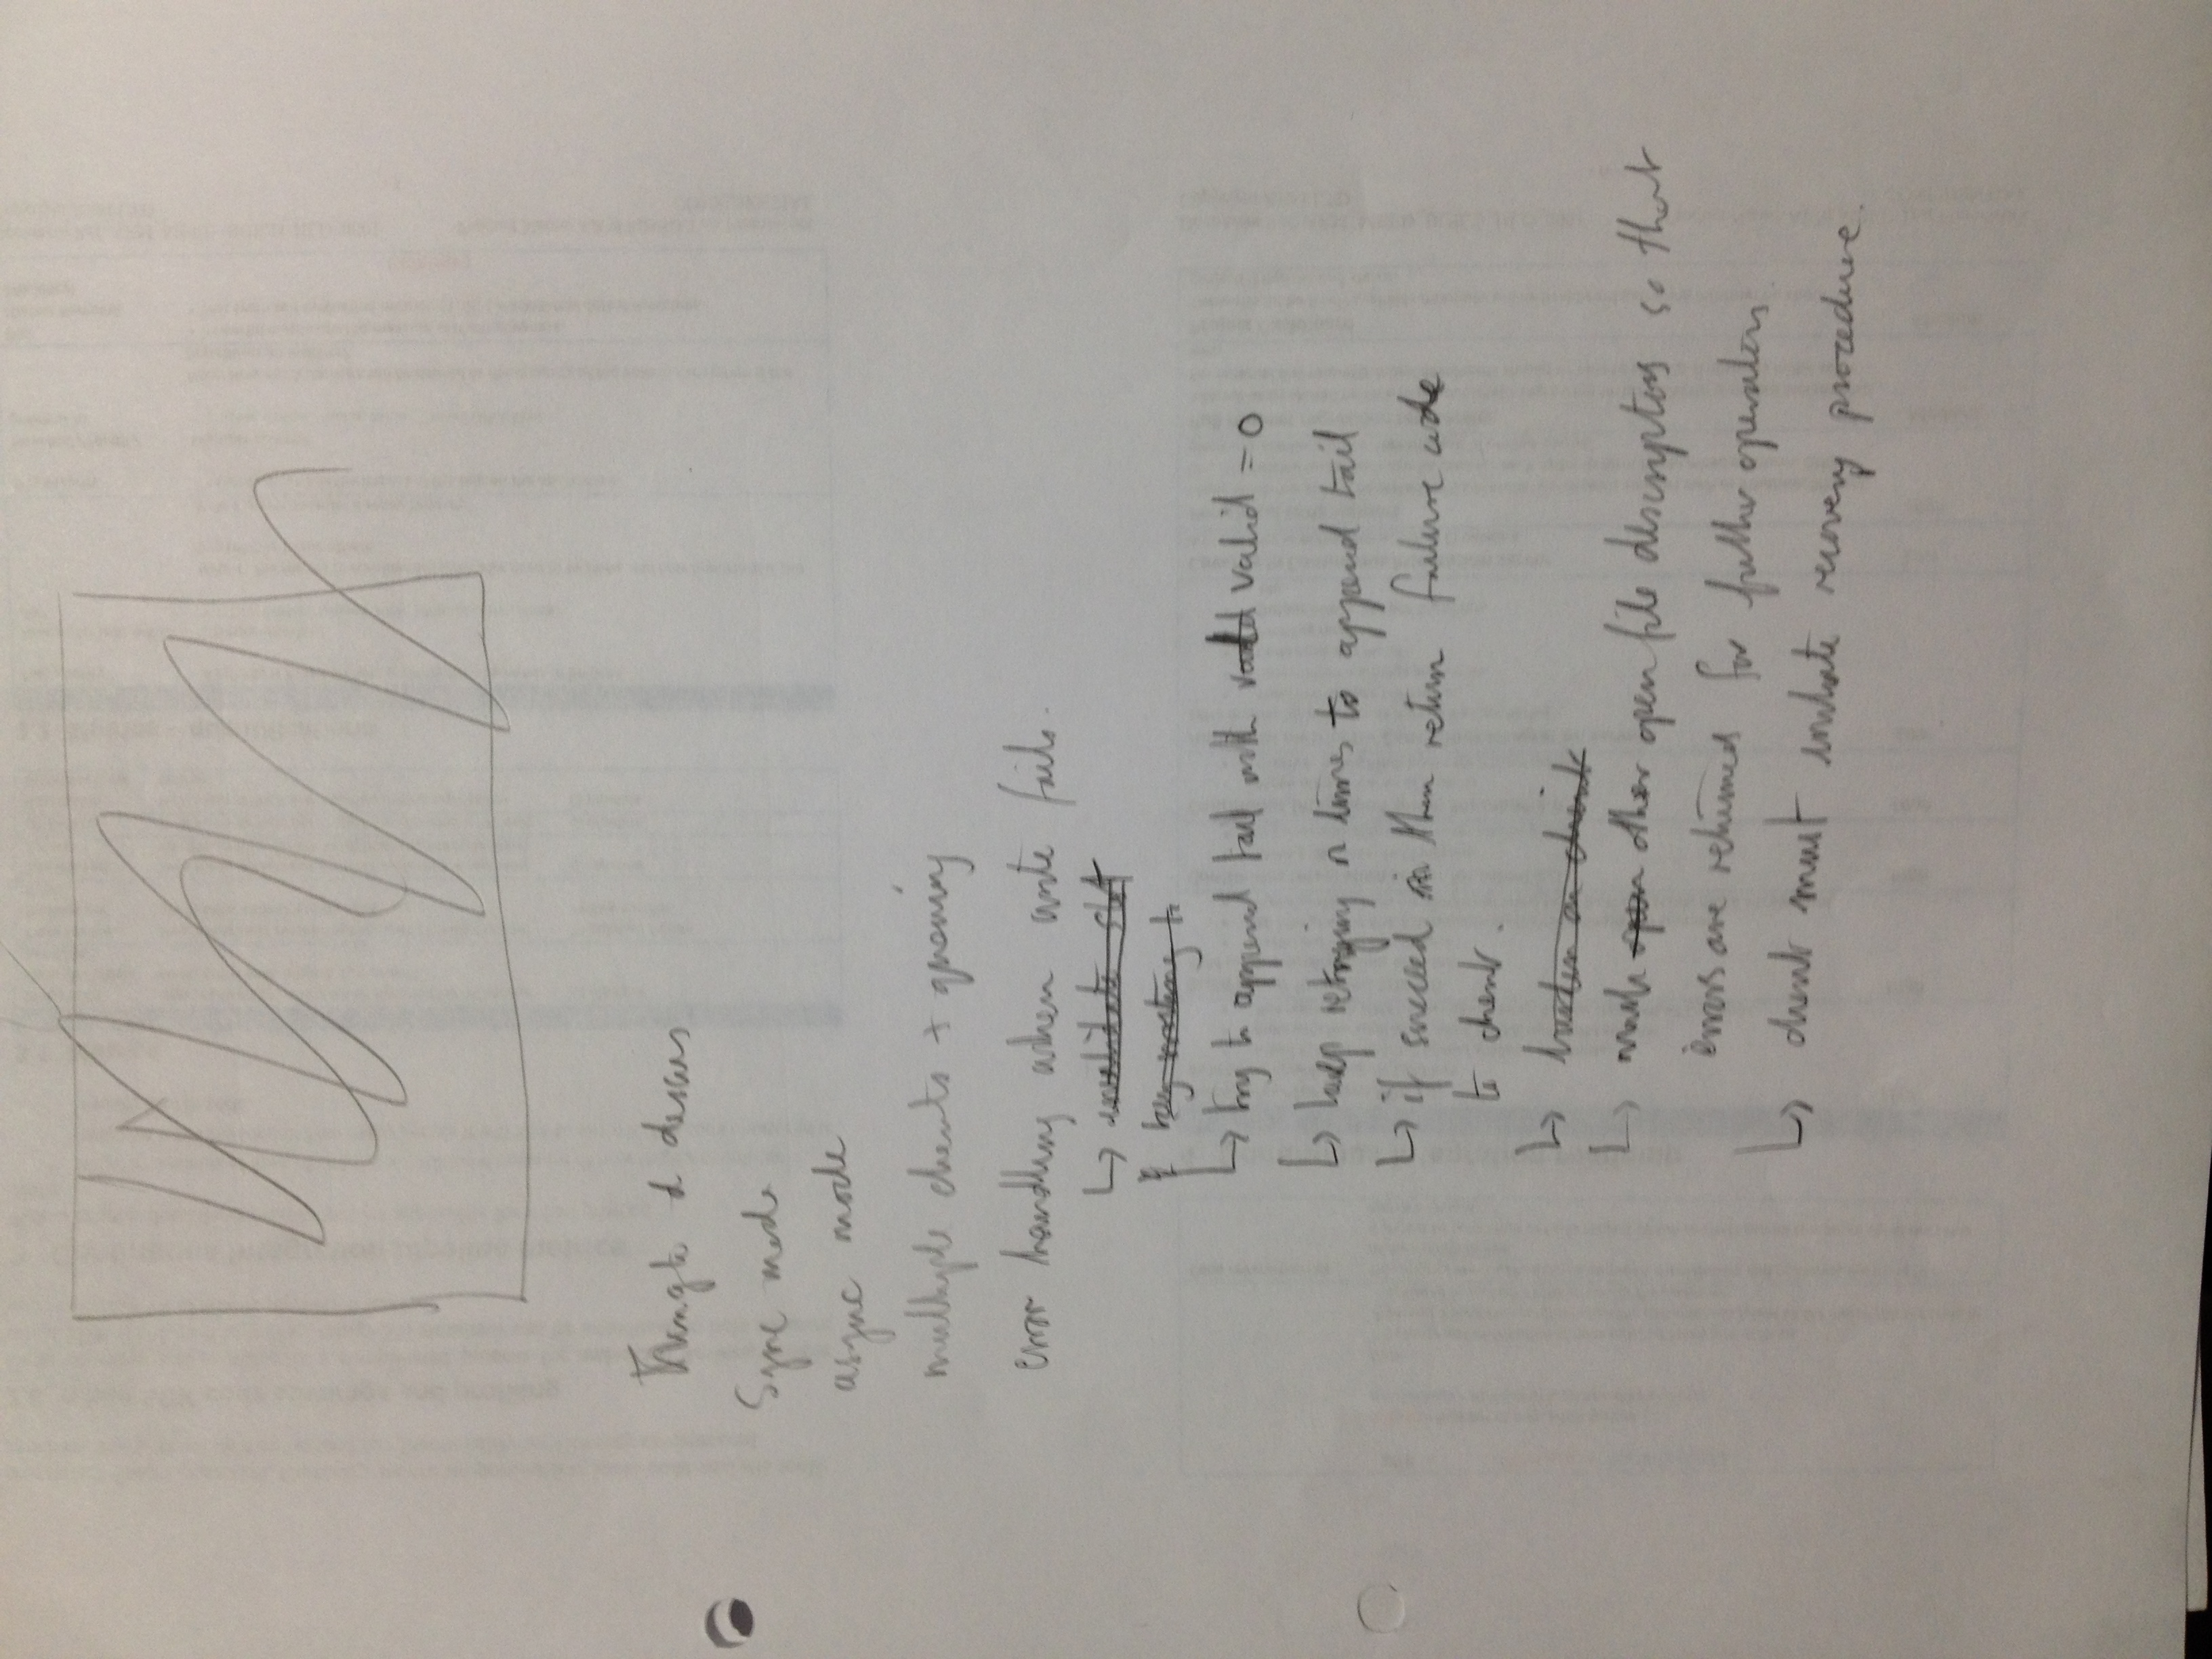 Things to discuss
Sync mode
async mode
multiple clients + queuing
error handling when write fails.
↳ invalidate slot
try writing to
↳ try to append tail with valid valid = 0
↳ keep retrying n times to append tail
↳ if succeed then return failure code
to client.
↳ burden on client
↳ mark open other open file descriptors so that
errors are returned for further operations
↳ client must initiate recovery procedure.